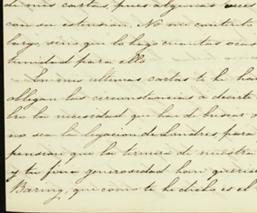 de mis cartas, pues algunas veces
con su estension. No me contesta
largo, sino que lo hago cuantas veces
tunidad para ello.
En mis ultimas cartas te he ha
obligan las circunstancias a decirte
la necesidad que ha de buscar
no sea la legacion de Londres para
pensar que la firmeza de nuestra
y tu pura generosidad han querido
Baring, que como te he dicho es el